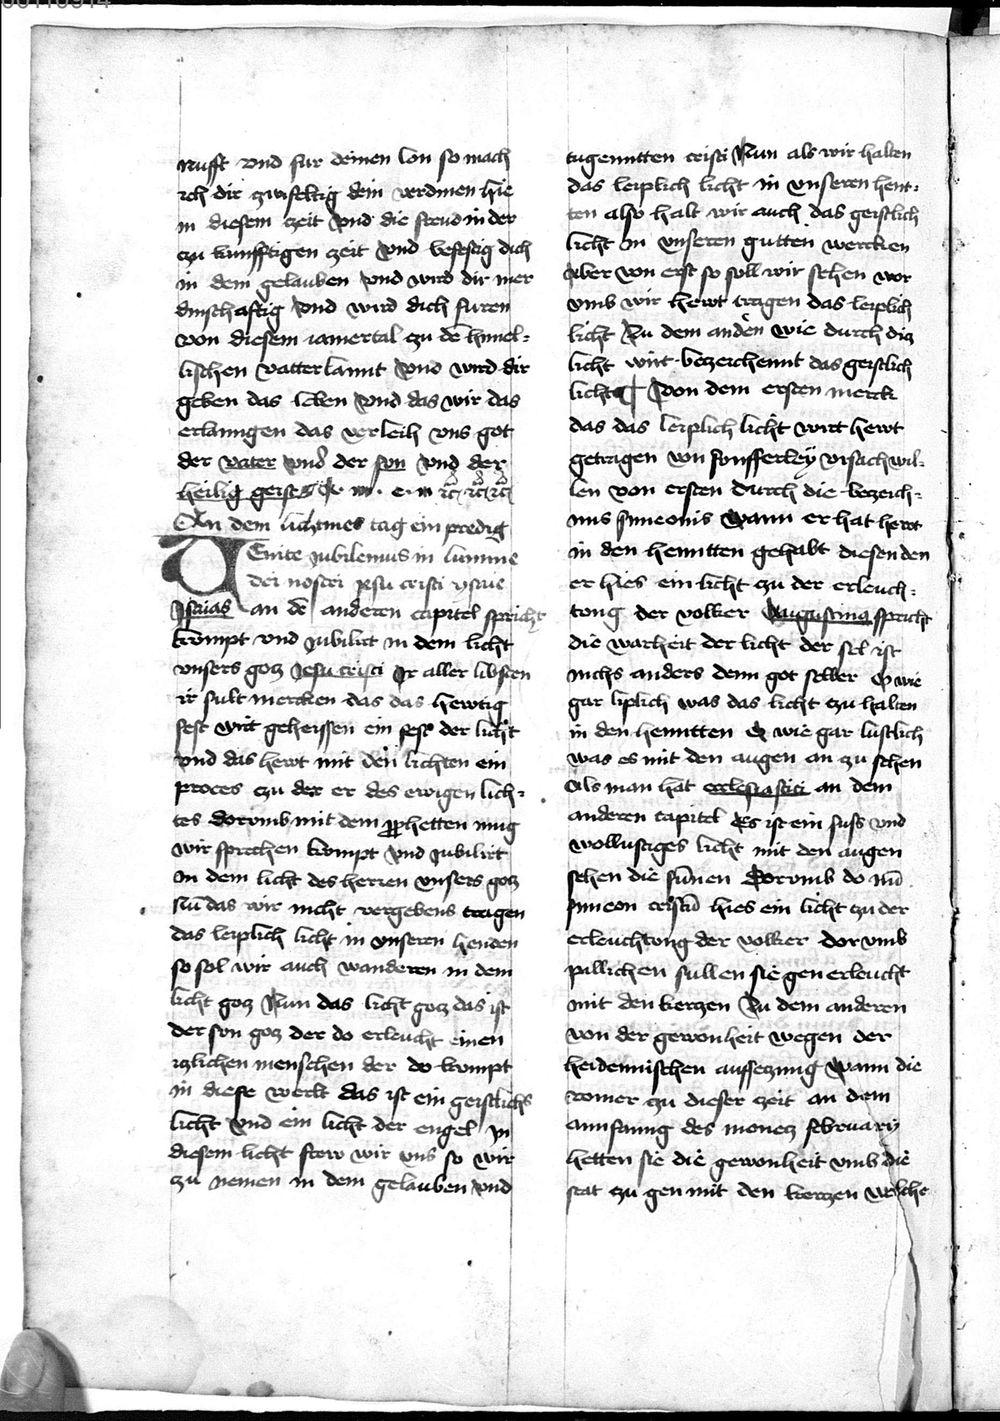 rufft vnd fur deinen lon so mach
ich dir zwifeltig dein verdinen hie
in diesem zeit Vnd die freud in der
zu kunfftigen zeit Vnd befestig dich
in dem gelauben Vnd wird dir iner
dinschafftig Vnd wird dich furen
von diesem iamertal zu dē himel=
lischen vatterlannt Vnd wird dir
geben das leben Vnd das wir das
erlanngen das verleih vns got
der vater Vnd der son Vnd der
heilig geist
An dem lichtmes tag ein predig
VEnite Jubilemus in lumine
dei nostri ihesu cristi ysaie
Isaias an dē anderen capitel spricht
kompt vnd Jubilirt in dem licht
vnsers gotz Jesu cristi Ir aller libsten
ir sult mercken das das hewtig
fest wirt geheissen ein fest der licht
vnd das hewt mit den lichten ein
proces zu der er des ewigen lich=
tes dorvmb mit dem propheten mug
wir sprechen kompt vnd Jubilirt
in dem licht des herren vnsers gotz
Nu das wir nicht vergebens tragen
das leiplich licht in vnseren henden
so sol wir auch wanderen in dem
licht gotz Nun das licht gotz das ist
der son gotz der do erleucht einen
itzlichen menschen der do kompt
in diese werlt das ist ein geistlichs
licht Vnd ein licht der engel In
diesem licht frew wir vns so wir
zu nemen in dem gelauben Vnd
tugenntten cristi Nun als wir halten
das leiplich licht in vnseren hent=
ten also halt wir auch das geistlich
licht in vnseren gutten wercken
Aber von erst so soll wir sehen wor
vmb wir hewt tragen das leiplich
licht Zu dem anden wie durch diz
licht wirt bezeichennt das geistlich
licht Von dem ersten merck
das das leiplich licht wirt hewt
getragen von funfferley vrsach wil=
len von ersten durch die bezeich=
nus simeonis Wann er hat hewt
in den henntten gehabt diesen den
er hies ein licht zu der erleuch=
tong der volker Augustinus spricht
die warheit der licht der sel ist
nichs anders denn got selber O wie
gar liplich was das licht zu halten
in den henntten O wie gar lustlich
was es mit den augen an zu sehen
Als man hat ecclesiastici an dem
anderen capitel Es ist ein suss vnd
wollustiges licht mit den augen
sehen die sunnen Dorvmb do nū
simeon cristū hies ein licht zu der
erleuchtong der volker dor vmb
pillichen sullen sie gen erleucht
mit den kerczen Zu dem anderen
von der gewonheit wegen der
heidennischen auffsezung Wann die
romer zu dieser zeit an dem
annfanng des monetz february
hetten sie die gewonheit vmb die
stat zu gen mit den kerczen welche